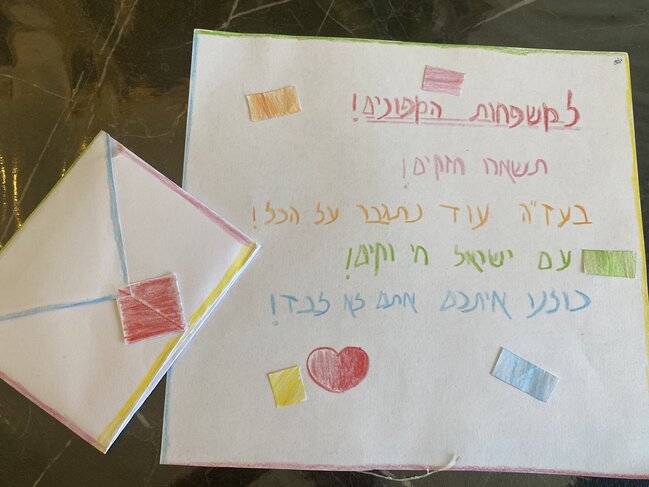 למשפחות המפונים!
תשארו חזקים!
בעז"ה עוד נתגבר על הכל!
עם ישראל חי וקים!
כולנו איתכם אתם לא לבד!